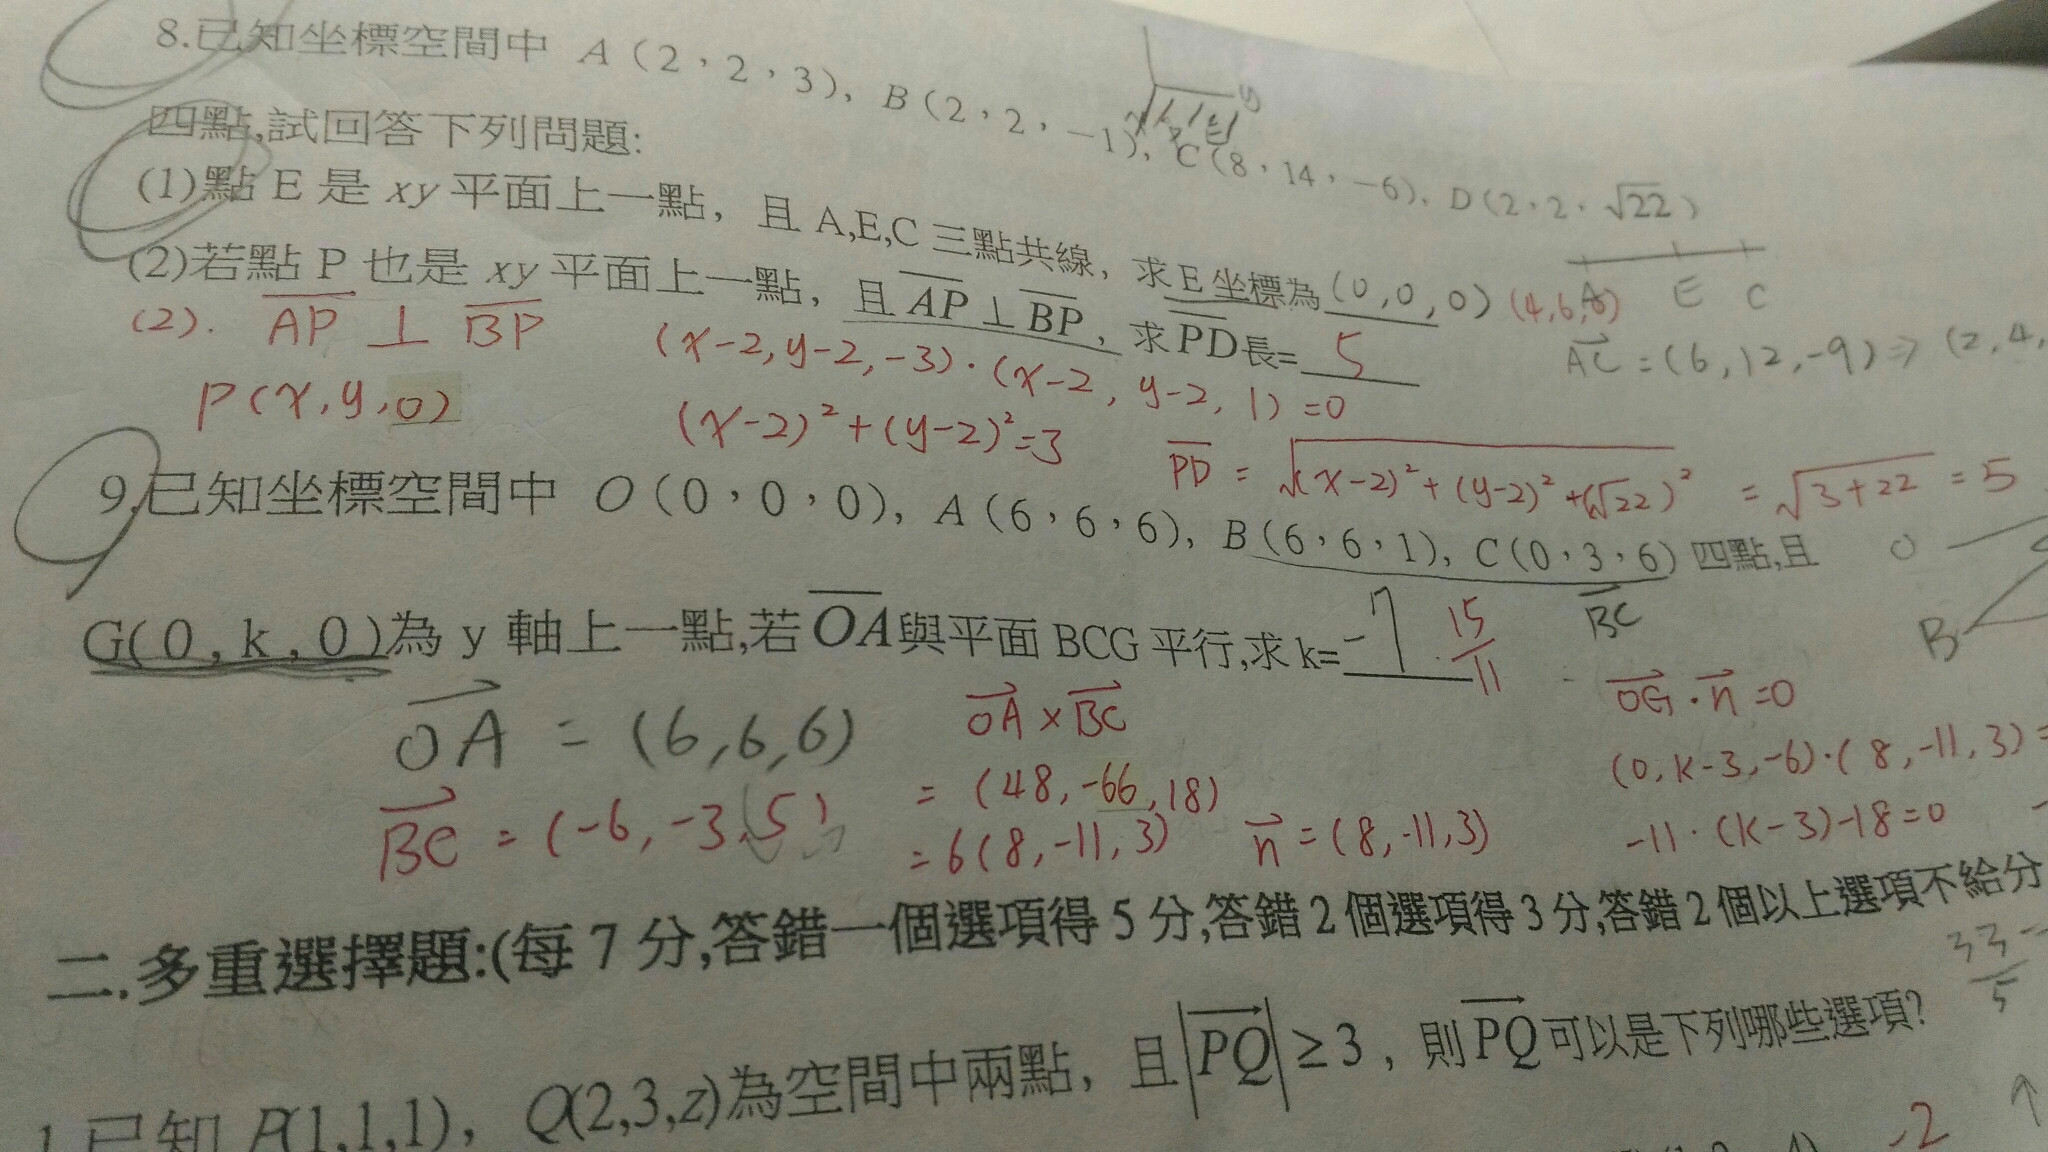 8.已知坐標空間中 A(2,2,3), B(2,2,-1), C(8,14,-6), D(2,2,√22)
四點,試回答下列問題:
(1)點 E 是 xy 平面上一點, 且 A,E,C 三點共線, 求 E 坐標為 (0,0,0) (4,6,0)
A E C
(2)若點 P 也是 xy 平面上一點, 且 AP⊥BP, 求 PD 長= 5
AC = (6,12,-9) ⇒ (2,4,
(2). AP ⊥ BP (x-2,y-2,-3)·(x-2,y-2,1)=0
P(x,y,0) (x-2)²+(y-2)²=3
PD = √(x-2)²+(y-2)²+(√22)² = √3+22 = 5
9.已知坐標空間中 O(0,0,0), A(6,6,6), B(6,6,1), C(0,3,6) 四點,且
O
BC
B
G(0,k,0)為 y 軸上一點,若 OA 與平面 BCG 平行,求 k= -7 15/11
OA = (6,6,6)
BC = (-6,-3,5)
OA × BC
= (48,-66,18)
= 6(8,-11,3) n = (8,-11,3)
OG·n=0
(0,k-3,-6)·(8,-11,3)=
-11·(k-3)-18=0
二.多重選擇題:(每 7 分,答錯一個選項得 5 分,答錯 2 個選項得 3 分,答錯 2 個以上選項不給分
33-
5
1.已知 P(1,1,1), Q(2,3,z)為空間中兩點, 且|PQ|≥3, 則PQ可以是下列哪些選項?
-2